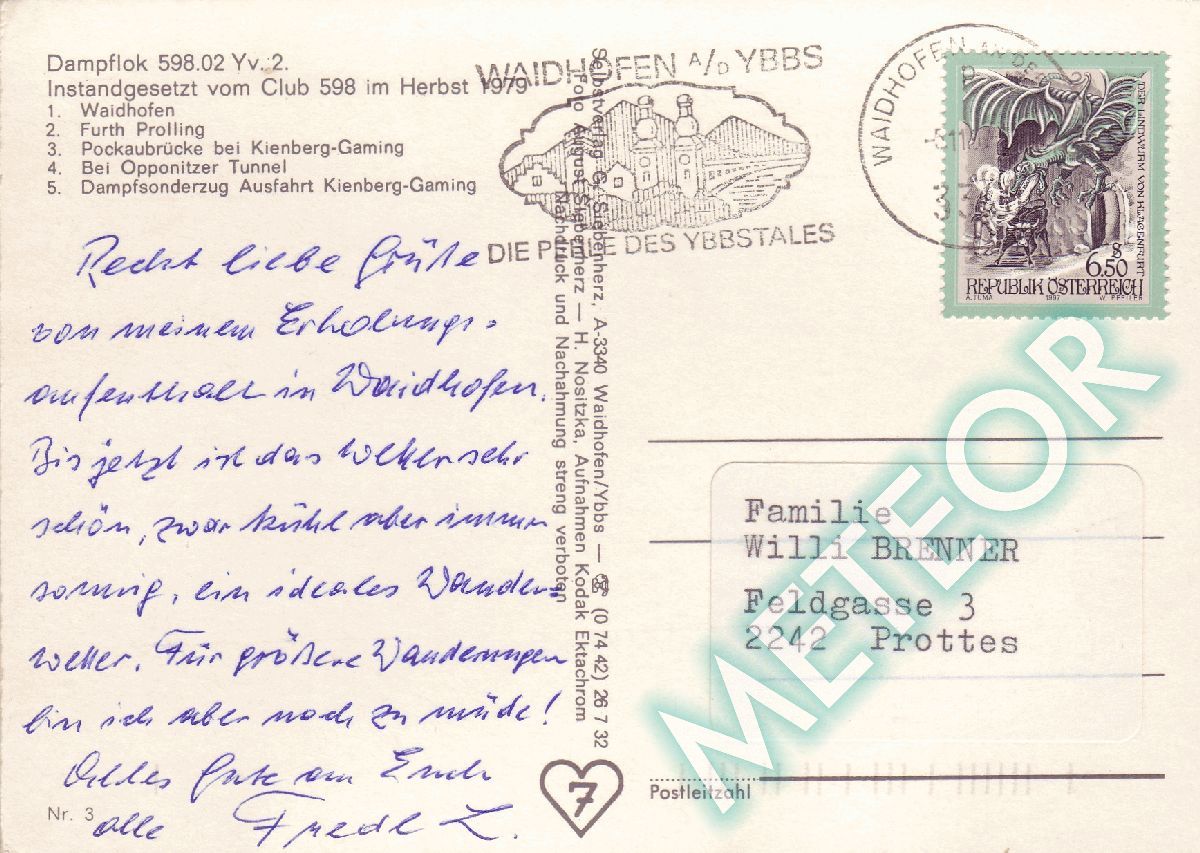 Dampflok 598.02 Yv. 2.
Instandgesetzt vom Club 598 im Herbst 1979
1. Waidhofen
2. Furth Prolling
3. Pockaubrücke bei Kienberg-Gaming
4. Bei Opponitzer Tunnel
5. Dampfsonderzug Ausfahrt Kienberg-Gaming
WAIDHOFEN A/D YBBS
DIE DES YBBSTALES
WAIDHOFEN
DER LINDWURM VON KLAGENFURT
S
6,50
REPUBLIK ÖSTERREICH
A. TUMA 1997 W. PFEILER
Recht liebe Grüße
von meinem Erholungs-
aufenthalt in Waidhofen.
Bis jetzt ist das Wetter sehr
schön, zwar kühl aber immer
sonnig, ein ideales Wander-
wetter. Für größere Wanderungen
bin ich aber noch zu müde!
Alles Gute an Euch
alle Fredl L.
Selbstverlag G. Siebenherz, A-3340 Waidhofen/Ybbs — ☎ (0 74 42) 26 7 32
Foto August Siebenherz — H. Nositzka, Aufnahmen Kodak Ektachrom
Nachdruck und Nachahmung streng verboten
Familie
Willi BRENNER
Feldgasse 3
2242 Prottes
Postleitzahl
Nr. 3
7
METEOR